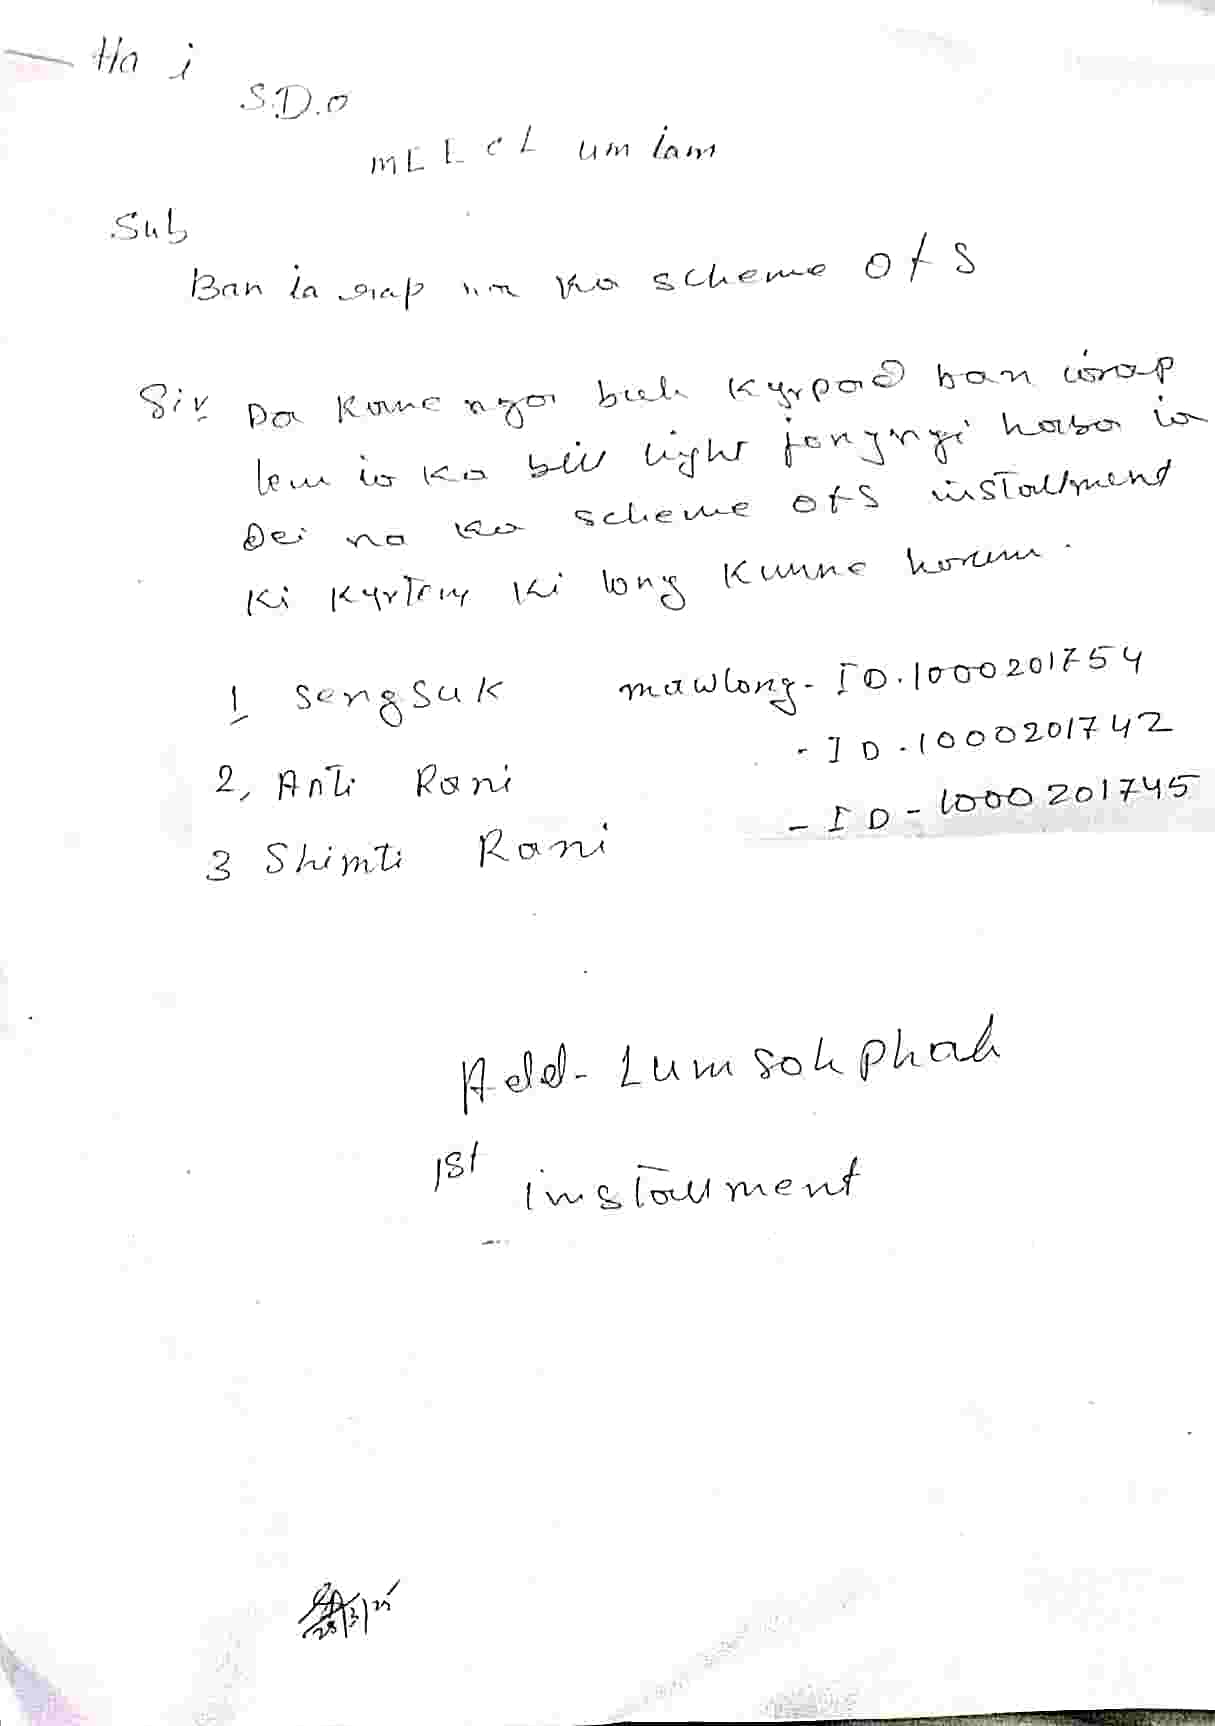 Ha i
S.D.O
MEECL umiam
Sub
Ban ia rap na ka scheme OtS
Sir Da kane nga buh kyrpad ban iarap
lem ia ka bill light jongngi haba ia
dei na ka scheme OtS installment
ki kyrteng ki long kumne harum.
1 Sengsuk mawlong - ID.1000201754
2, Anti Rani - ID.1000201742
3 Shimti Rani - ID-1000201745
Add- Lumsohphoh
1st installment
28/3/25